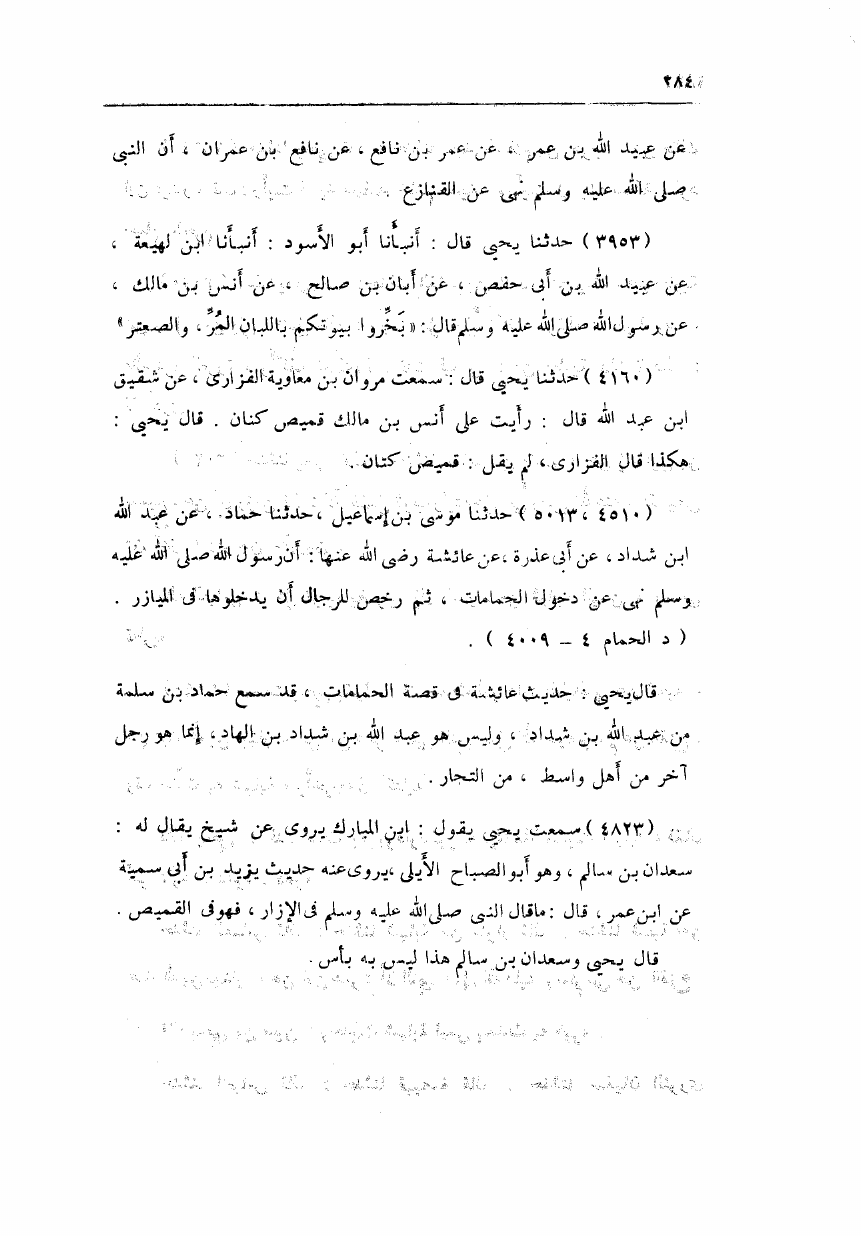 ٢٨٤
عن عبيد الله بن عمر ، عن عمر بن نافع ، عن نافع بن عمران ، أن النبى
صلى الله عليه وسلم نهى عن القنازع
(٣٩٥٣) حدثنا يحيى قال : أنبأنا أبو الأسود : أنبأنا ابن لهيعة ،
عن عبيد الله بن أبى حفص ، عن أبان بن صالح ، عن أنس بن مالك ،
عن رسول الله صلى الله عليه وسلم قال : « بَخِّروا بيوتكم باللبان المُرِّ ، والصعتر »
(٤١٦٠) حدثنا يحيى قال : سمعت مروان بن معاوية الفزارى ، عن شقيق
ابن عبد الله قال : رأيت على أنس بن مالك قميص كتان . قال يحيى :
هكذا قال الفزارى ، لم يقل : قميص كتان .
(٤٥١٠ ، ٥٠١٣) حدثنا موسى بن إسماعيل ، حدثنا حماد ، عن عبد الله
ابن شداد ، عن أبى عذرة ، عن عائشة رضى الله عنها : أن رسول الله صلى الله عليه
وسلم نهى عن دخول الحمامات ، ثم رخص للرجال أن يدخلوها فى الميازر .
( د الحمام ٤ – ٤٠٠٩ ) .
قال يحيى : حديث عائشة فى قصة الحمامات ، قد سمع حماد بن سلمة
من عبد الله بن شداد ، وليس هو عبد الله بن شداد بن الهاد ، إنما هو رجل
آخر من أهل واسط ، من التجار .
(٤٨٢٣) سمعت يحيى يقول : ابن المبارك يروى عن شيخ يقال له :
سعدان بن سالم ، وهو أبو الصباح الأيلى ، يروى عنه حديث يزيد بن أبى سمية
عن ابن عمر ، قال : ما قال النبى صلى الله عليه وسلم فى الإزار ، فهو فى القميص .
قال يحيى وسعدان بن سالم هذا ليس به بأس .